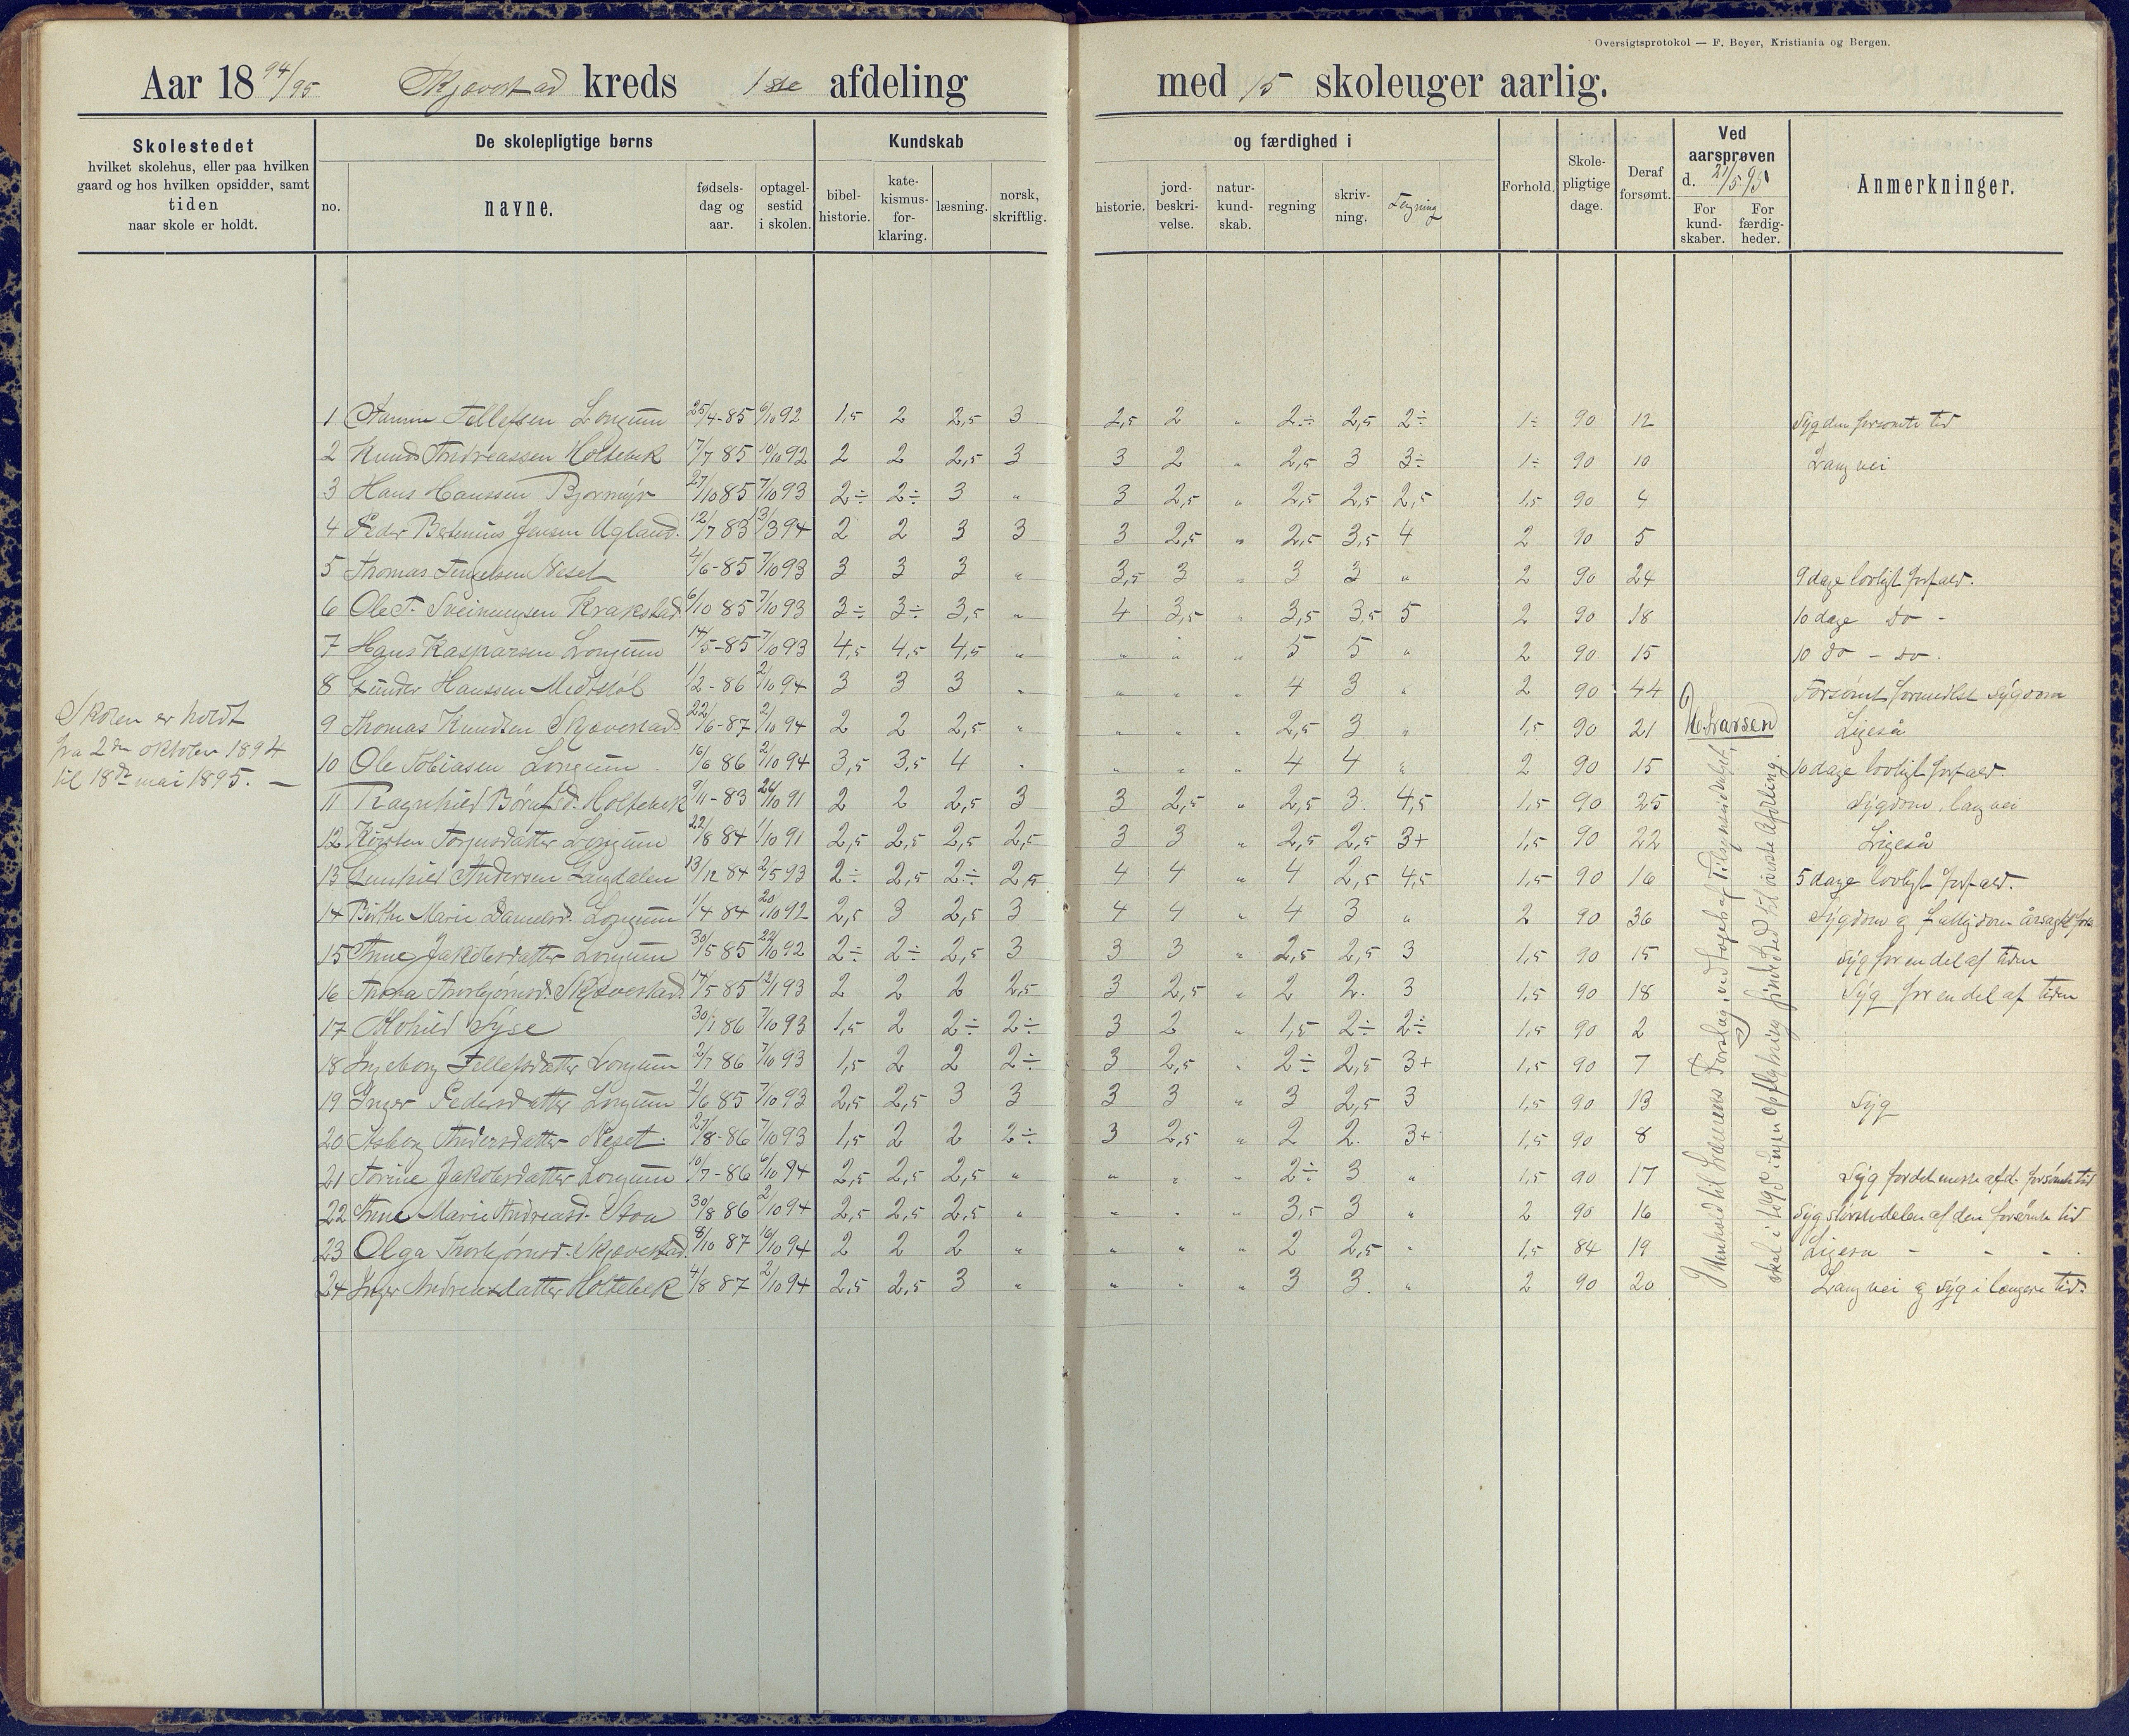 Oversigtsprotokol — F. Beyer, Kristiania og Bergen.
Aar 18 94/95 Skjævestad kreds 1ste afdeling med 15 skoleuger aarlig.
Skolestedet
hvilket skolehus, eller paa hvilken
gaard og hos hvilken opsidder, samt
tiden
naar skole er holdt.
De skolepligtige børns
no. navne. fødsels-dag og aar. optagel-sestid i skolen.
Kundskab og færdighed i
bibel-historie. kate-kismus-for-klaring. læsning. norsk, skriftlig. historie. jord-beskri-velse. natur-kund-skab. regning skriv-ning. Tegning
Forhold. Skole-pligtige dage. Deraf forsømt.
Ved aarsprøven d. 21/5 95
For kund-skaber. For færdig-heder.
Anmerkninger.
Skolen er holdt
fra 2den oktober 1894
til 18de mai 1895. —
1 Tellefsen Longum 25/4-85 6/10 92 1,5 2 2,5 3 2,5 2 " 2÷ 2,5 2÷ 1÷ 90 12 Syg den forsømte tid
2 Knud Andreassen Holtebek 17/7 85 10/10 92 2 2 2,5 3 3 2 " 2,5 3 3÷ 1÷ 90 10 Lang vei
3 Hans Hanssen Bjormyr 27/10 85 7/10 93 2÷ 2÷ 3 " 3 2,5 " 2,5 2,5 2,5 1,5 90 4
4 Peder Jensen Ugland. 12/7 83 13/3 94 2 2 3 3 3 2,5 " 2,5 3,5 4 2 90 5
5 Thomas Neset 4/6-85 7/10 93 3 3 3 " 3,5 3 " 3 3 " 2 90 24 9 dage lovligt forfald.
6 Ole T. Sveinungsen Krakstad. 6/10 85 7/10 93 3÷ 3÷ 3,5 " 4 3,5 " 3,5 3,5 5 2 90 18 10 dage do -
7 Hans Kasparsen Longum 14/5-85 7/10 93 4,5 4,5 4,5 " " " " 5 5 " 2 90 15 10 do - do.
8 Gunder Hanssen Midtstøl 1/2-86 2/10 94 3 3 3 " " " " 4 3 " 2 90 44 Forsømt formedelst sygdom
9 Thomas Knudsen Skjævestad 22/6-87 2/10 94 2 2 2,5 " " " " 2,5 3 " 1,5 90 21 Ligeså
10 Ole Tobiasen Longum 16/6 86 2/10 94 3,5 3,5 4 " " " " 4 4 " 2 90 15 10 dage lovligt forfald.
11 Ragnhild Holtebek 9/11-83 26/10 91 2 2 2,5 3 3 2,5 " 2,5 3. 4,5 1,5 90 25 Sygdom, lang vei
12 Kirsten Torjusdatter Longum 22/8 84 1/10 91 2,5 2,5 2,5 2,5 3 3 " 2,5 2,5 3+ 1,5 90 22 Ligeså
13 Gunhild Andersen Langdalen 13/12 84 2/5 93 2÷ 2,5 2÷ 2,5 4 4 " 4 2,5 4,5 1,5 90 16 5 dage lovligt forfald.
14 Birthe Marie Danielsd. Longum 1/4 84 20/10 92 2,5 3 2,5 3 4 4 " 4 3 " 2 90 36 Sygdom og fattigdom
15 Anne Jakobsdatter Longum 30/5 85 22/10 92 2÷ 2÷ 2,5 3 3 3 " 2,5 2,5 3 1,5 90 15 Syg for en del af tiden
16 Thora Thorbjørnsd. Skjævestad. 14/5 85 12/1 93 2 2 2 2,5 3 2,5 " 2 2. 3 1,5 90 18 Syg for en del af tiden
17 Alohild Syse 30/1 86 7/10 93 1,5 2 2÷ 2÷ 3 2 " 1,5 2÷ 2÷ 1,5 90 2
18 Ingeborg Tellefsdatter Longum 2/7 86 7/10 93 1,5 2 2 2÷ 3 2,5 " 2÷ 2,5 3+ 1,5 90 7
19 Inger Pedersdatter Longum 2/6 85 7/10 93 2,5 2,5 3 3 3 3 " 3 2,5 3 1,5 90 13 Syg
20 Asborg Andersdatter Neset. 27/8-86 7/10 93 1,5 2 2 2÷ 3 2,5 " 2 2. 3+ 1,5 90 8
21 Torine Jakobsdatter Longum 10/7-86 6/10 94 2,5 2,5 2,5 " " " " 2÷ 3 " 1,5 90 17 Syg for det meste af d. forsømte tid
22 Anne Marie Andreasd. Stoa 30/8 86 2/10 94 2,5 2,5 2,5 " " " " 3,5 3 " 2 90 16 Syg størstedelen af den forsømte tid
23 Olga Thorbjørnsd. Skjævestad. 8/10 87 16/10 94 2 2 2 " " " " 2 2,5 " 1,5 84 19 Ligesaa - - -
24 Inger Andreasdatter Holtebek 4/8 87 2/10 94 2,5 2,5 3 " " " " 3 3. " 2 90 20 Lang vei og syg i længere tid.
I Henhold til Lærerens Forslag, af Tilsynsudvalget,
skal i 1895 ingen Opflytning finde Sted til øverste Afdeling.
Larsen